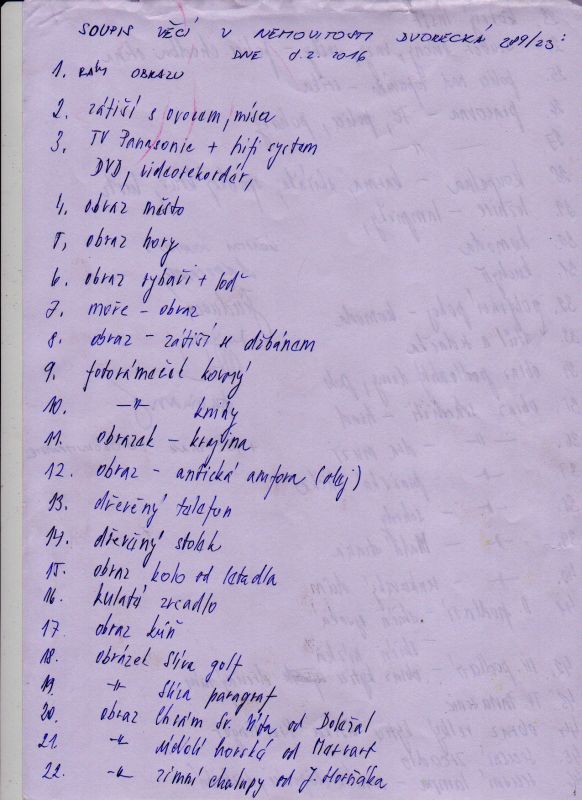 SOUPIS VĚCÍ V NEMOVITOSTI DVORECKÁ 289/23:
DNE 8.2.2016
1. RÁM OBRAZU
2. zátiší s ovocem, mísa
3. TV Panasonic + hifi system
DVD, videorekordér,
4. obraz město
5, obraz hory
6. obraz rybáři + loď
7. moře - obraz
8. obraz - zátiší se džbánem
9. fotorámeček kovový
10. -"- knihy
11. obrázek - krajina
12. obraz - antická amfora (olej)
13. dřevěný telefon
14. dřevěný stolek
15. obraz kolo od letadla
16. kulaté zrcadlo
17. obraz kůň
18. obrázek Slíva golf
19. -"- Slíva paragraf
20. obraz Chrám sv. Víta od Doležal
21 -"- údolí horská od
22. -"- zimní chalupy od J.